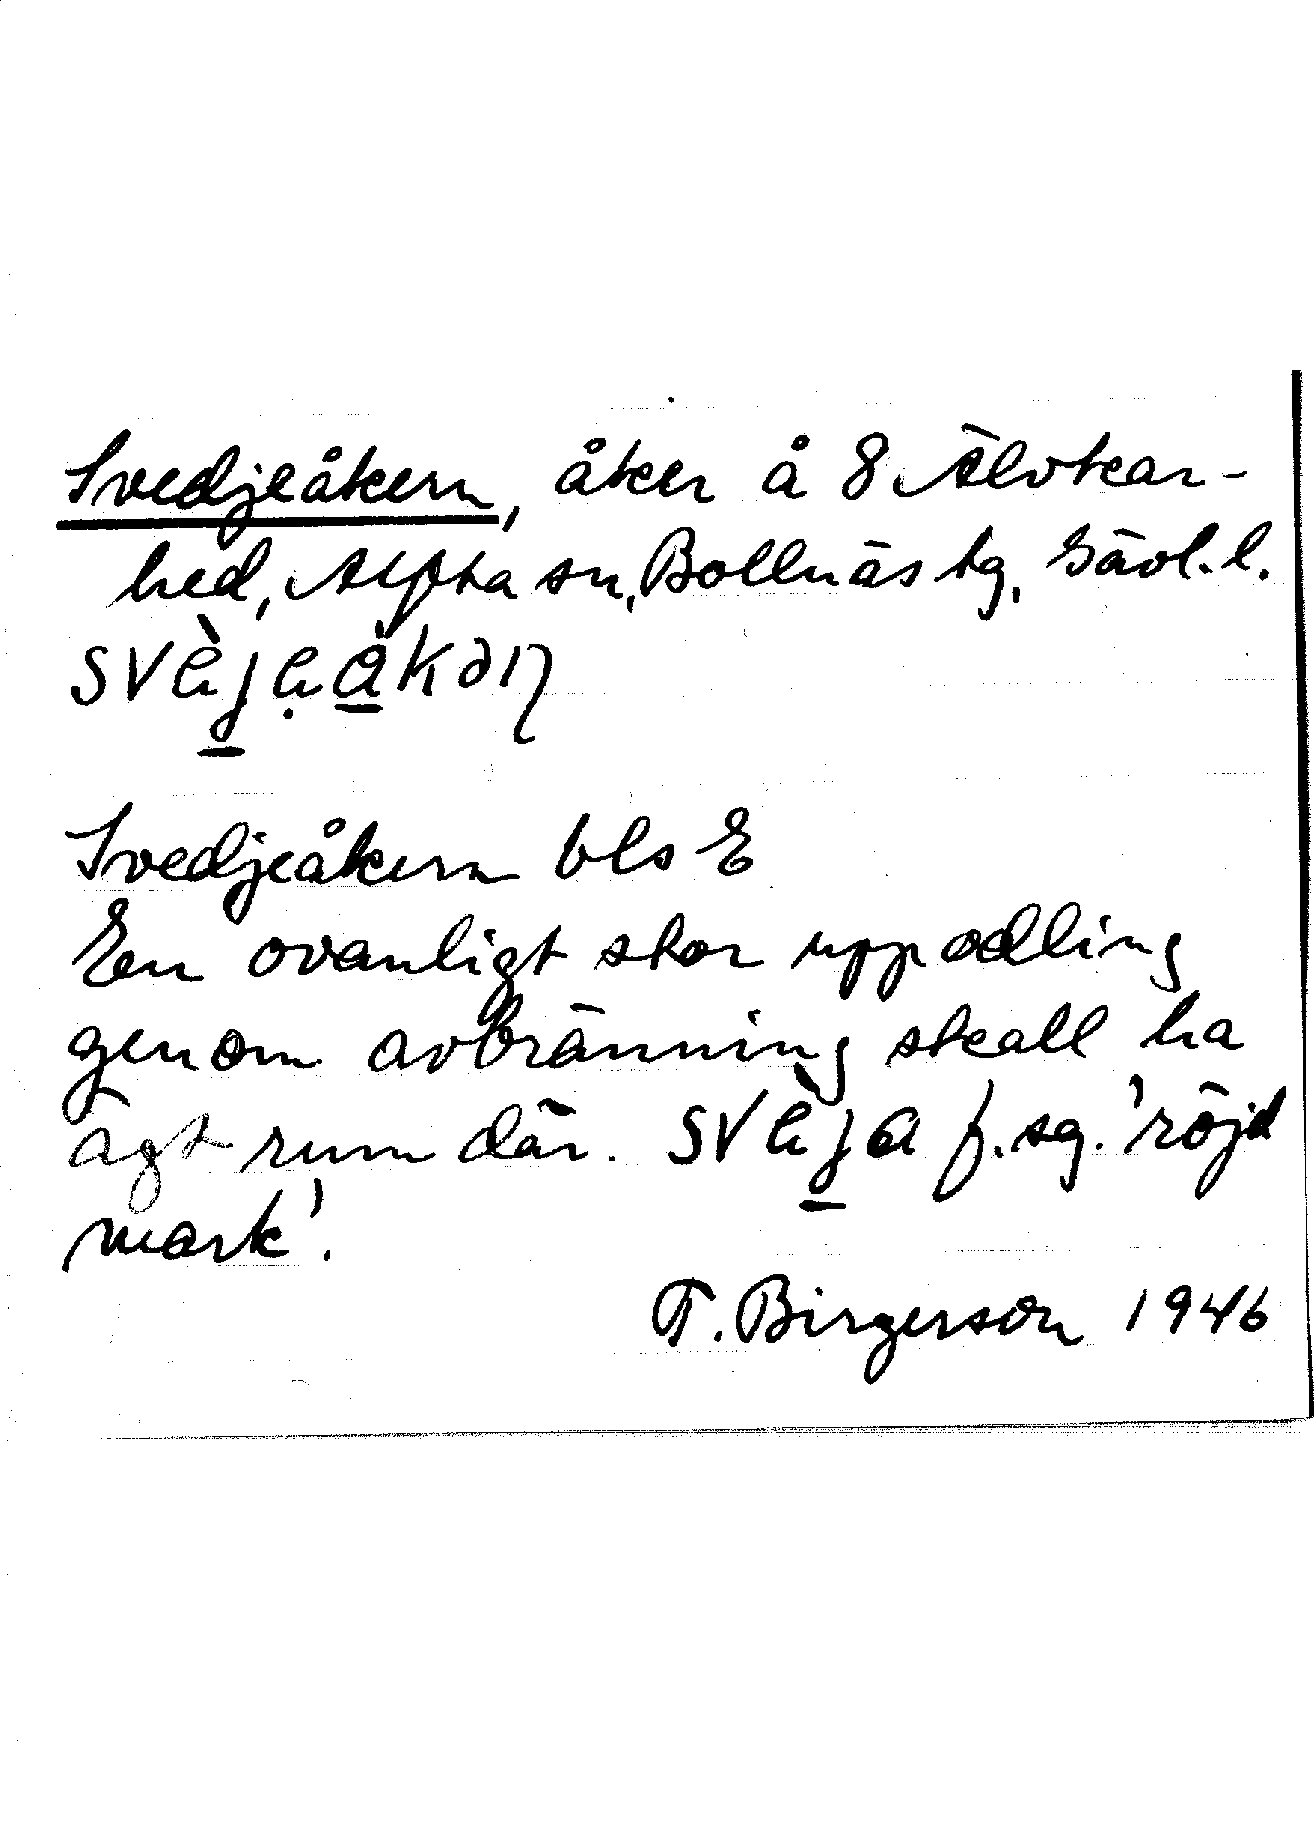 Svedjeåkern, åker å 8 Älvkar-
hed, Alfta sn, Bollnäs tg, Gävl. l.
svèjẹåkəṛn
Svedjeåkern bls E
En ovanligt stor uppodling
genom avbränning skall ha
ägt rum där. svèja f. sg. 'röjd
mark'.
T. Birgerson 1946